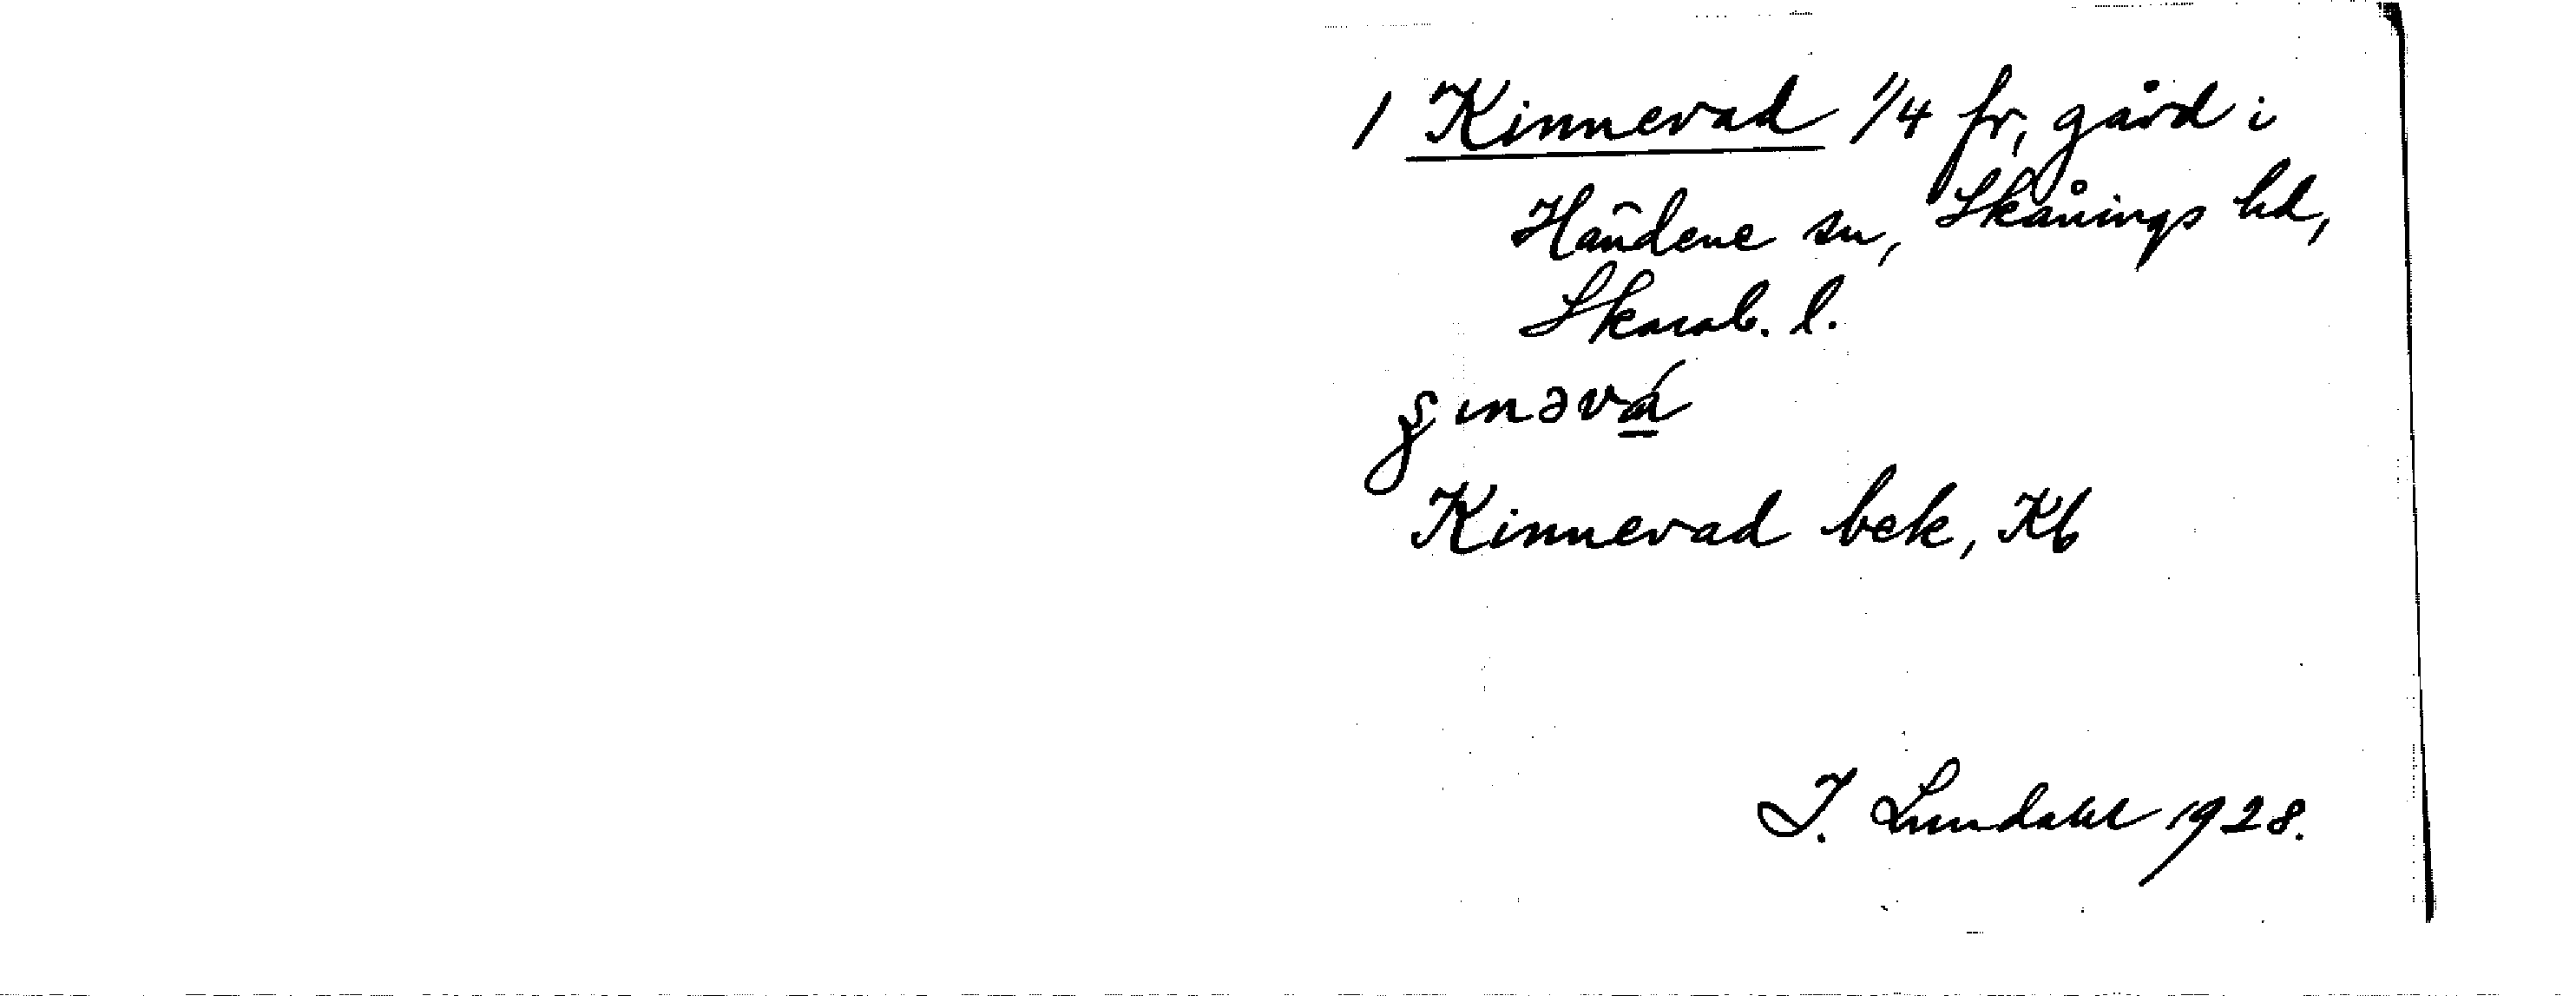 1 Kinnevad 1/4 fr, gård i
Händene sn, Skånings hd,
Skarab. l.
ʂɩnəvá
Kinnevad bek, Kb
I. Lundahl 1928.